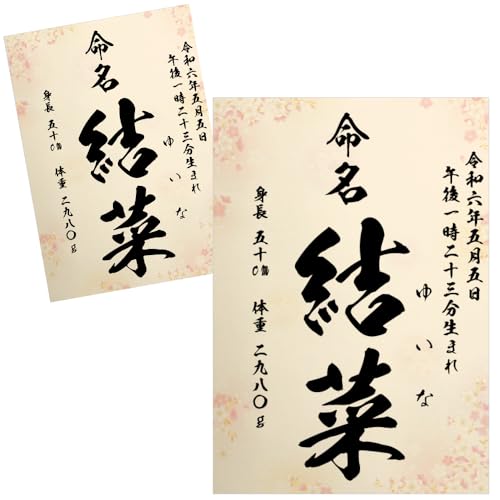 令和六年五月五日
午後一時二十三分生まれ
命名
結菜
ゆいな
身長 五十㎝ 体重 二九八〇g
令和六年五月五日
午後一時二十三分生まれ
命名
結菜
ゆいな
身長 五十㎝ 体重 二九八〇g